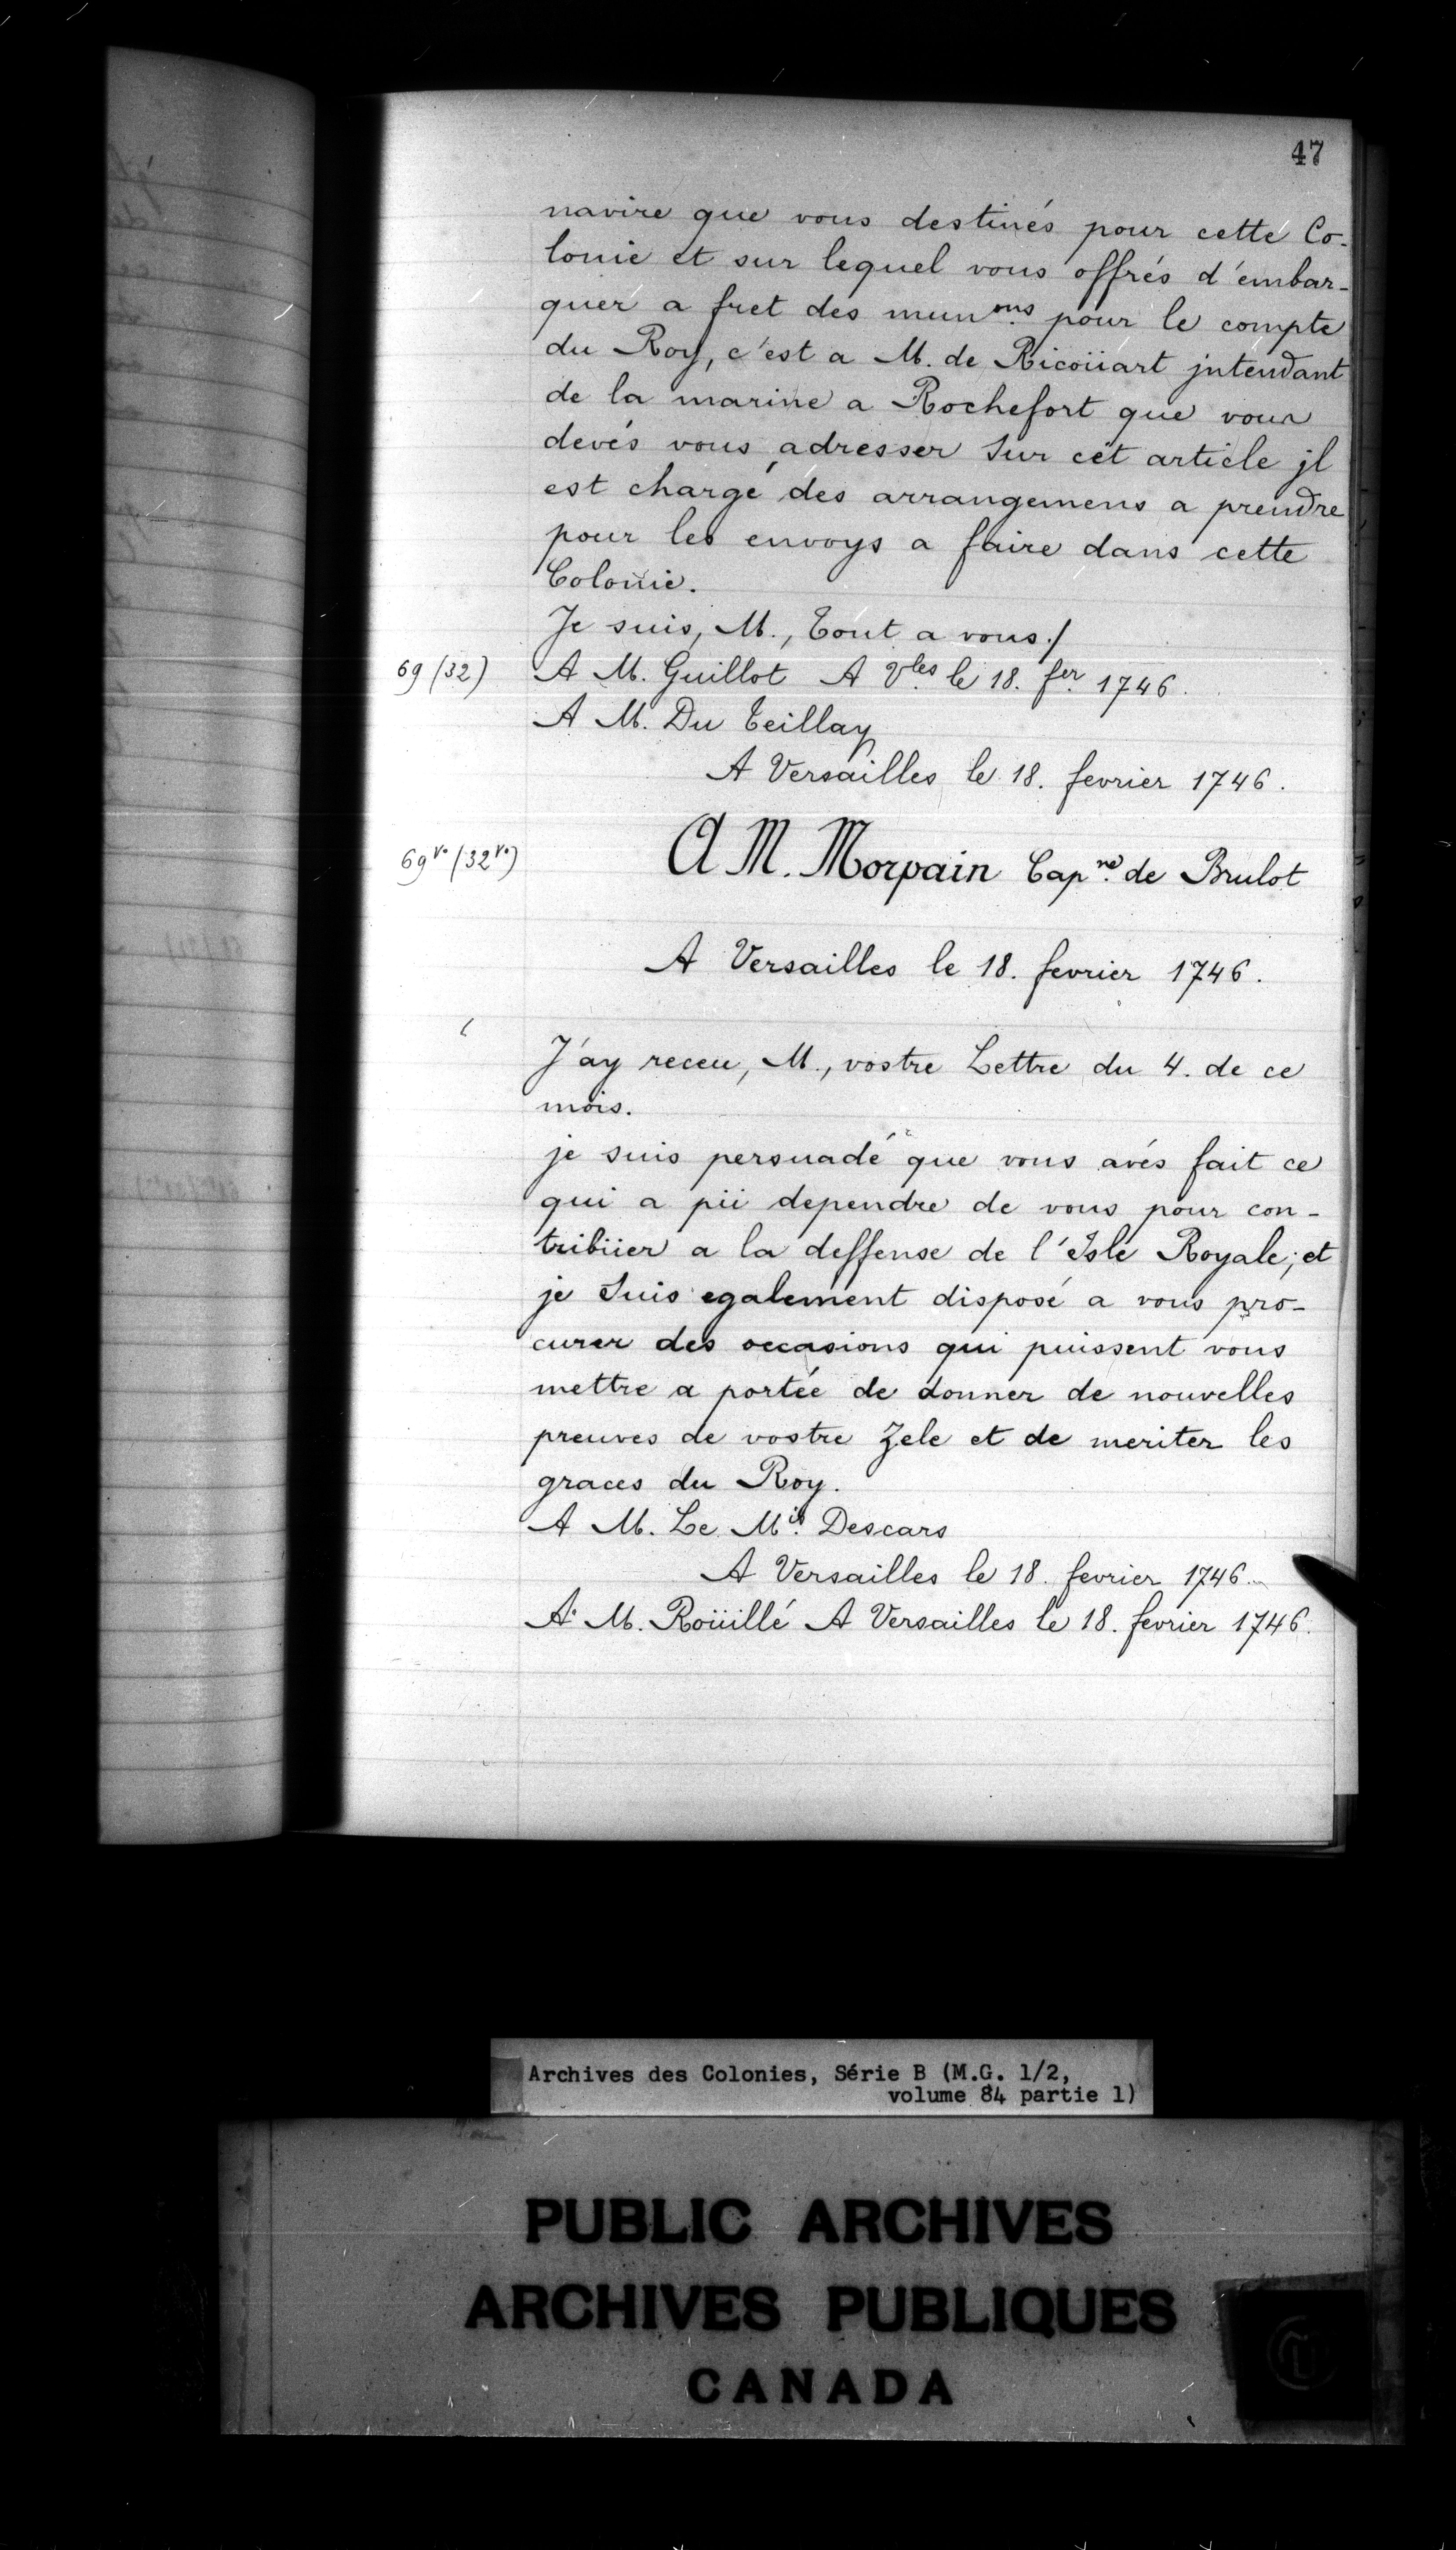 47
navire que vous destinés pour cette Co-
lonie et sur lequel vous offrés d'embar-
quer a fret des mun.ons pour le compte
du Roy, c'est a M. de Ricoüart jntendant
de la marine a Rochefort que vous
devés vous adresser Sur cet article jl
est chargé des arrangemens a prendre
pour les envoys a faire dans cette
Colonie.
Je suis, M., Tout a vous ./
69 (32) A M. Guillot A V.les le 18. f.er 1746.
A M. Du Teillay
A Versailles le 18. fevrier 1746.
69 vo (32 vo) A M. Morpain Cap.ne de Brulot
A Versailles le 18. fevrier 1746.
J'ay receu, M., vostre Lettre du 4. de ce
mois.
je suis persuadé que vous avés fait ce
qui a pü dependre de vous pour con-
tribüer a la deffense de l'Isle Royale; et
je Suis egalement disposé a vous pro-
curer des occasions qui puissent vous
mettre a portée de donner de nouvelles
preuves de vostre Zele et de meriter les
graces du Roy.
A M. Le M.is Descars
A Versailles le 18. fevrier 1746.
A M. Roüillé A Versailles le 18. fevrier 1746.
Archives des Colonies, Série B (M.G. 1/2,
volume 84 partie 1)
PUBLIC ARCHIVES
ARCHIVES PUBLIQUES
CANADA